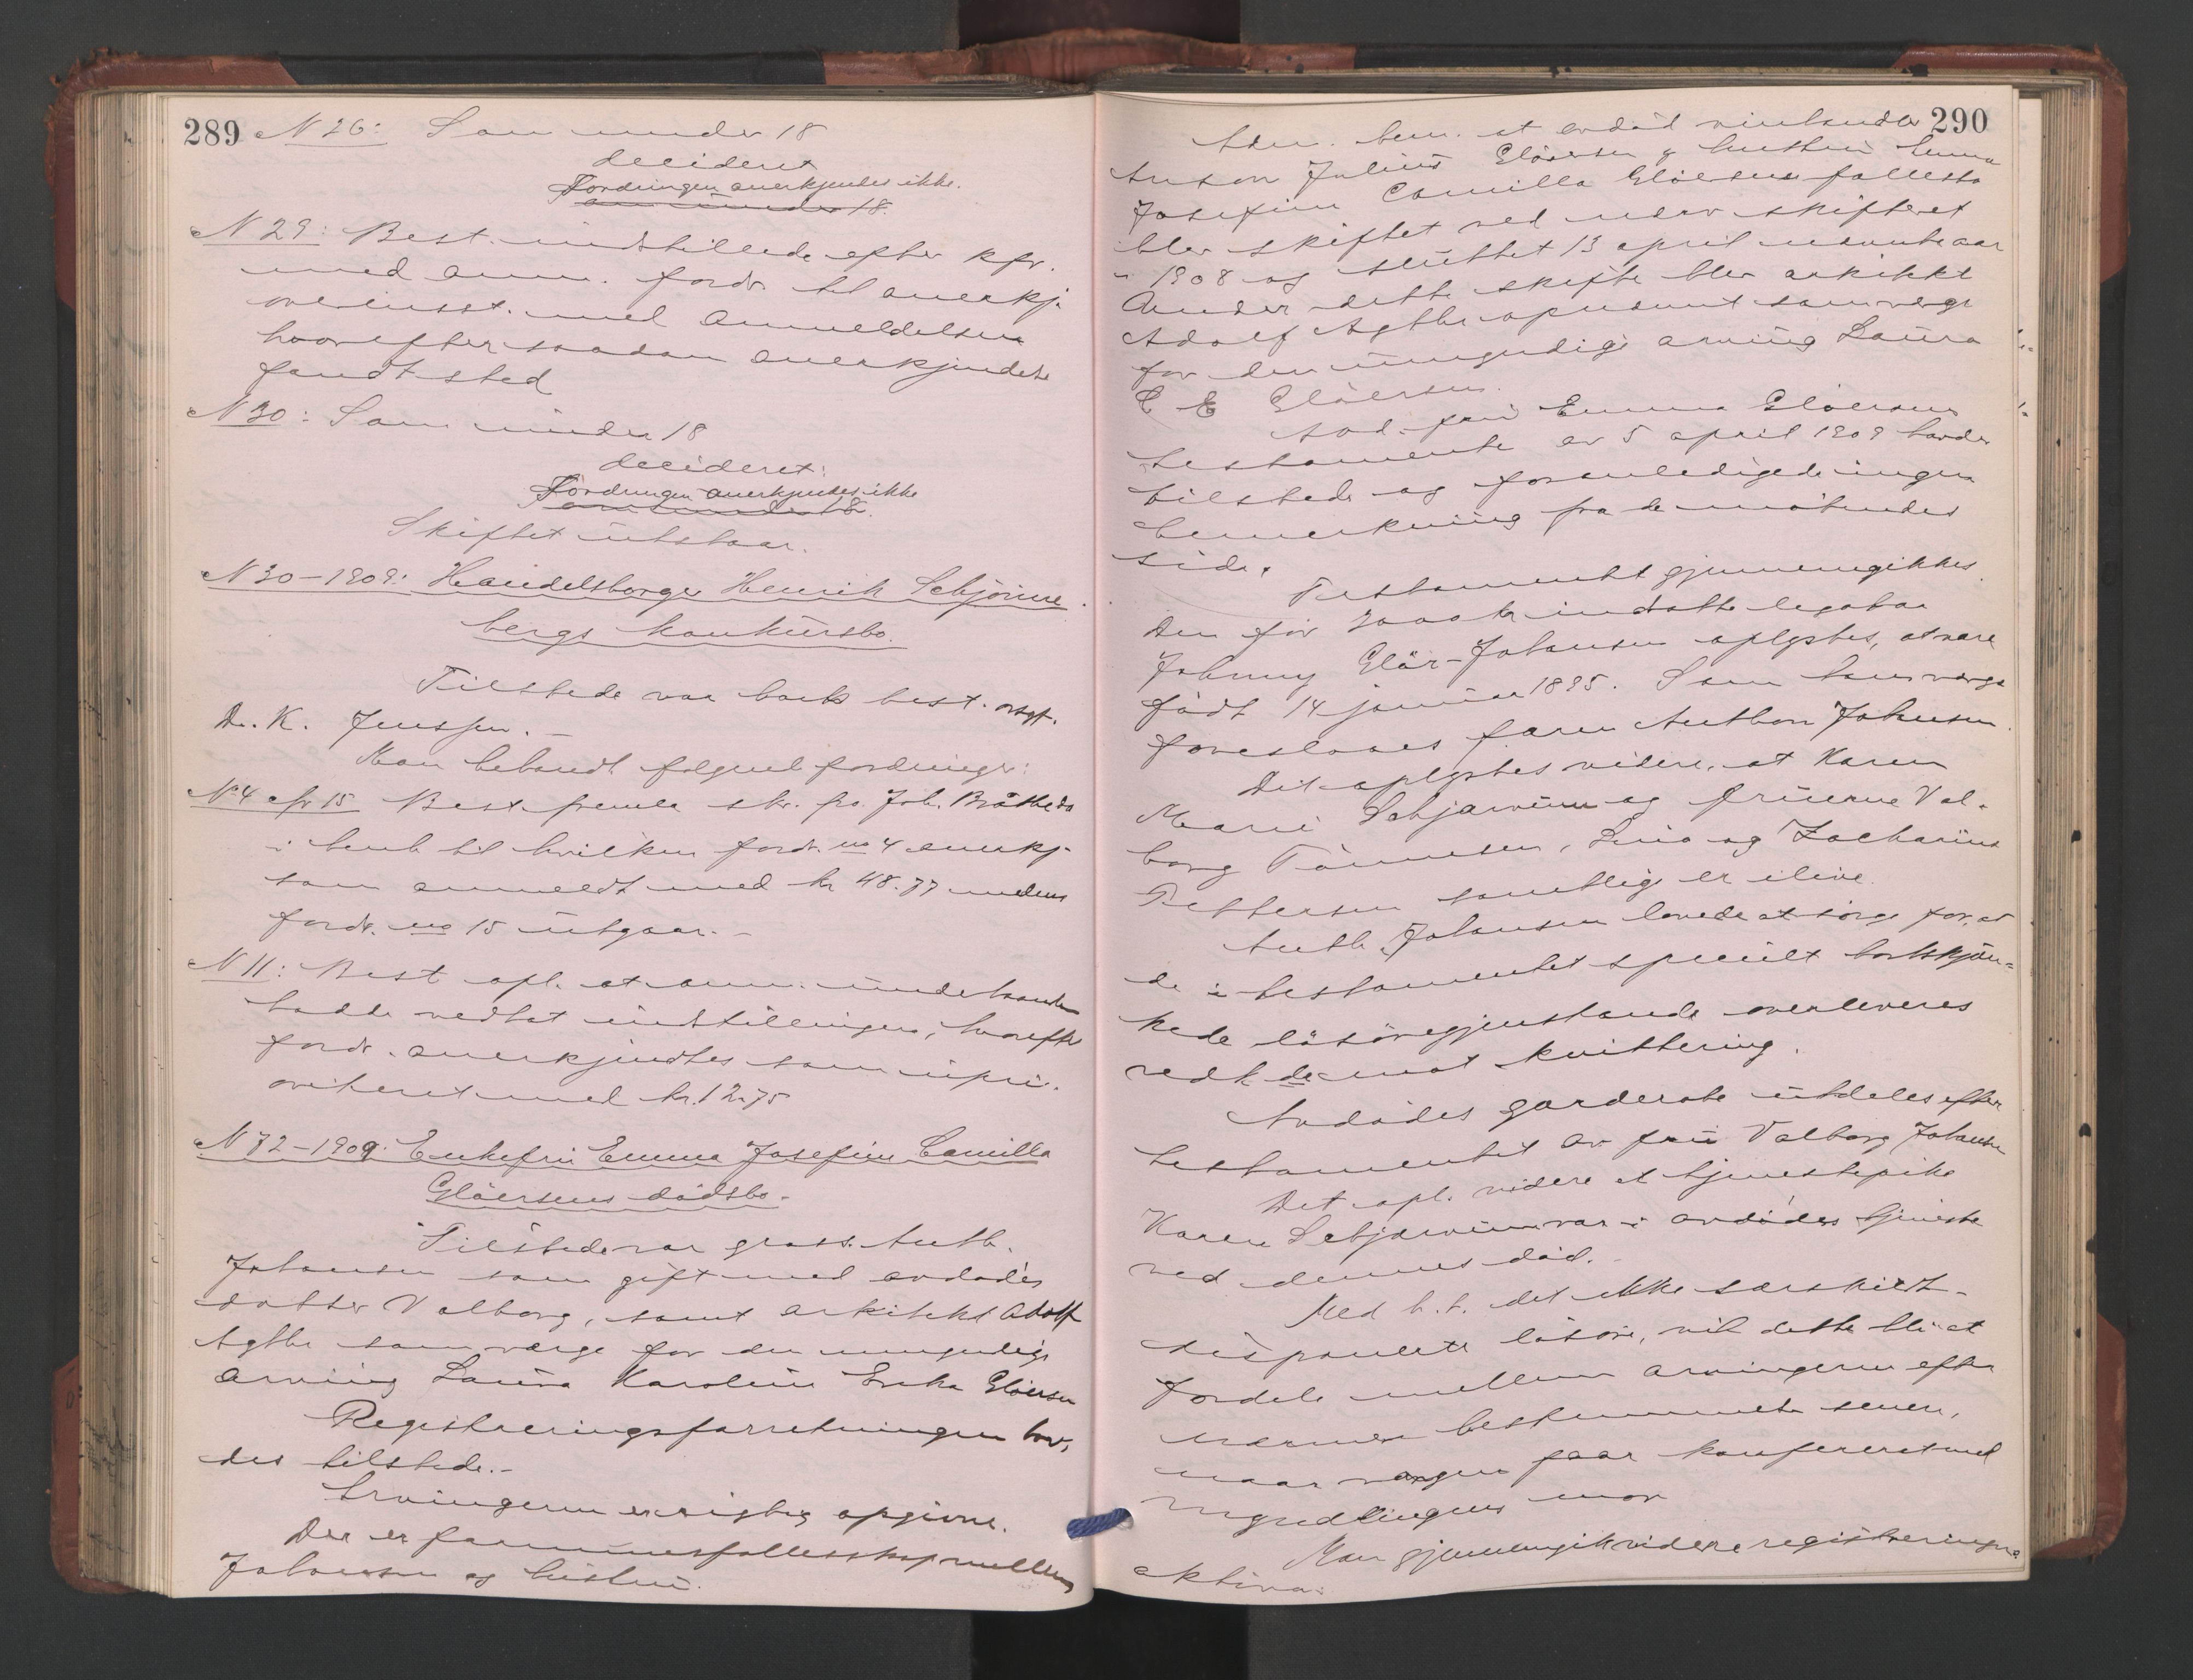 289 N 26: Som under 18
decideret
Fordringen anerkjendes ikke.
som under 18.
N 29: Best. indstillede efter kfr.
med anm. fordr. til anerkj.
overensst. med anmeldelsen
hvorefter saadan anerkjendelse
fandt sted
N 30: Som under 18
decideret:
Fordringen anerkjendes ikke
som under 18.
Skiftet utstaar.
N 30-1909: Handelsborger Henrik Schjönne
bergs konkursbo.
Tilstede var bocts best. osgf.
Dr. K. Jenssen.
Man behandl følgende fordringer:
N 4 cfr 15 Best. freml. skr. fra Joh. Bråthe ds
i henh. til hvilken fordr. no 4 anerkj.
som anmeldt med kr 48.77 medens
fordr. no 15 utgaar.-
N 11: Best. opl. at anm. underhaanden
hadde vedtat indstillingen, hvorefter
fordr. anerkjendtes som upri-
oriteret med kr. 12.75
N 72-1909: Enkefru Emma Josefine Camilla
Glöersens dödsbo.-
Tilstede var gross. Anth.
Johansen som gift med avdødes
datter Valborg, samt arkitekt Adolf
Agthe som verge for den umyndige
arving Laura Karoline Erika Glöersen
Registreringsforretningen hav-
des tilstede.-
Arvingerne er rigtig opgivne.
Der er formuesfællesskap mellem
Johansen og hustru.
290
Adm. bem. at avdød vinhandler
Anton Julius Glöersen & hustru Emma
Josefine Camilla Glöersens fællesbo
blev skiftet ved nærv. skifteret
i 1908 og sluttet 13 april næsnte aar
Under dette skifte blev arkitekt
Adolf Agthe opnævnt som verge
for den umyndige arving Laura
C E Glöersen.
Avd. fru Emma Glöersens
testamente av 5 april 1909 havdes
tilstede og foranledigede ingen
bemerkning fra de mötendes
side.
Testamentet gjennemgikkes.
Den for 2000 kr indsatte legatar
Johnny Glör-Johansen oplystes, at være
født 14 januar 1895. Som hans verge
foresloaes faren Anthon Johansen.
Det oplystes videre, at Karen
Marie Schjarvum og fruerne Val-
borg Tönnesen, Lina og Zacharine
Pettersen samtlige er ilive.
Anth. Johansen lovede at sörge for, at
de i testamentet specielt bortskjön-
kede lösöregjenstande overleveres
vedk.de mot kvittering.
Avdödes garderobe utdeles efter
testamentet av fru Valborg Johansen
Det opl. videre at tjenestepike
Karen Schjarvum var i avdödes tjeneste
ved dennes död.-
Med h.t. det ikke særskilt
disponerte lösöre, vil dette bli at
fordele mellem arvingerne efter
nærmere bestemmelse senere,
naar vergen faar konfereret med
myndlingens mor
Man gjennemgik videre registreringens
aktiva: